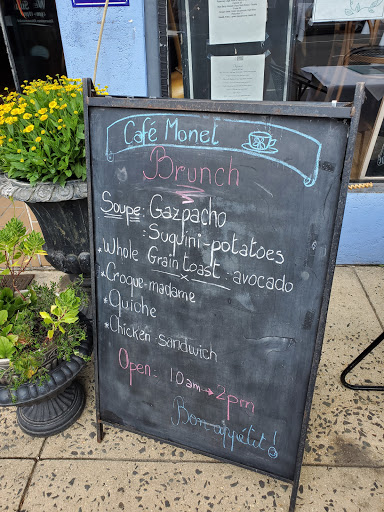 Café Monet
Brunch
Soupe: Gazpacho
: Suquini-potatoes
*Whole Grain toast: avocado
*Croque-madame
*Quiche
*Chicken-sandwich
Open: 10am→2pm
Bon appétit!